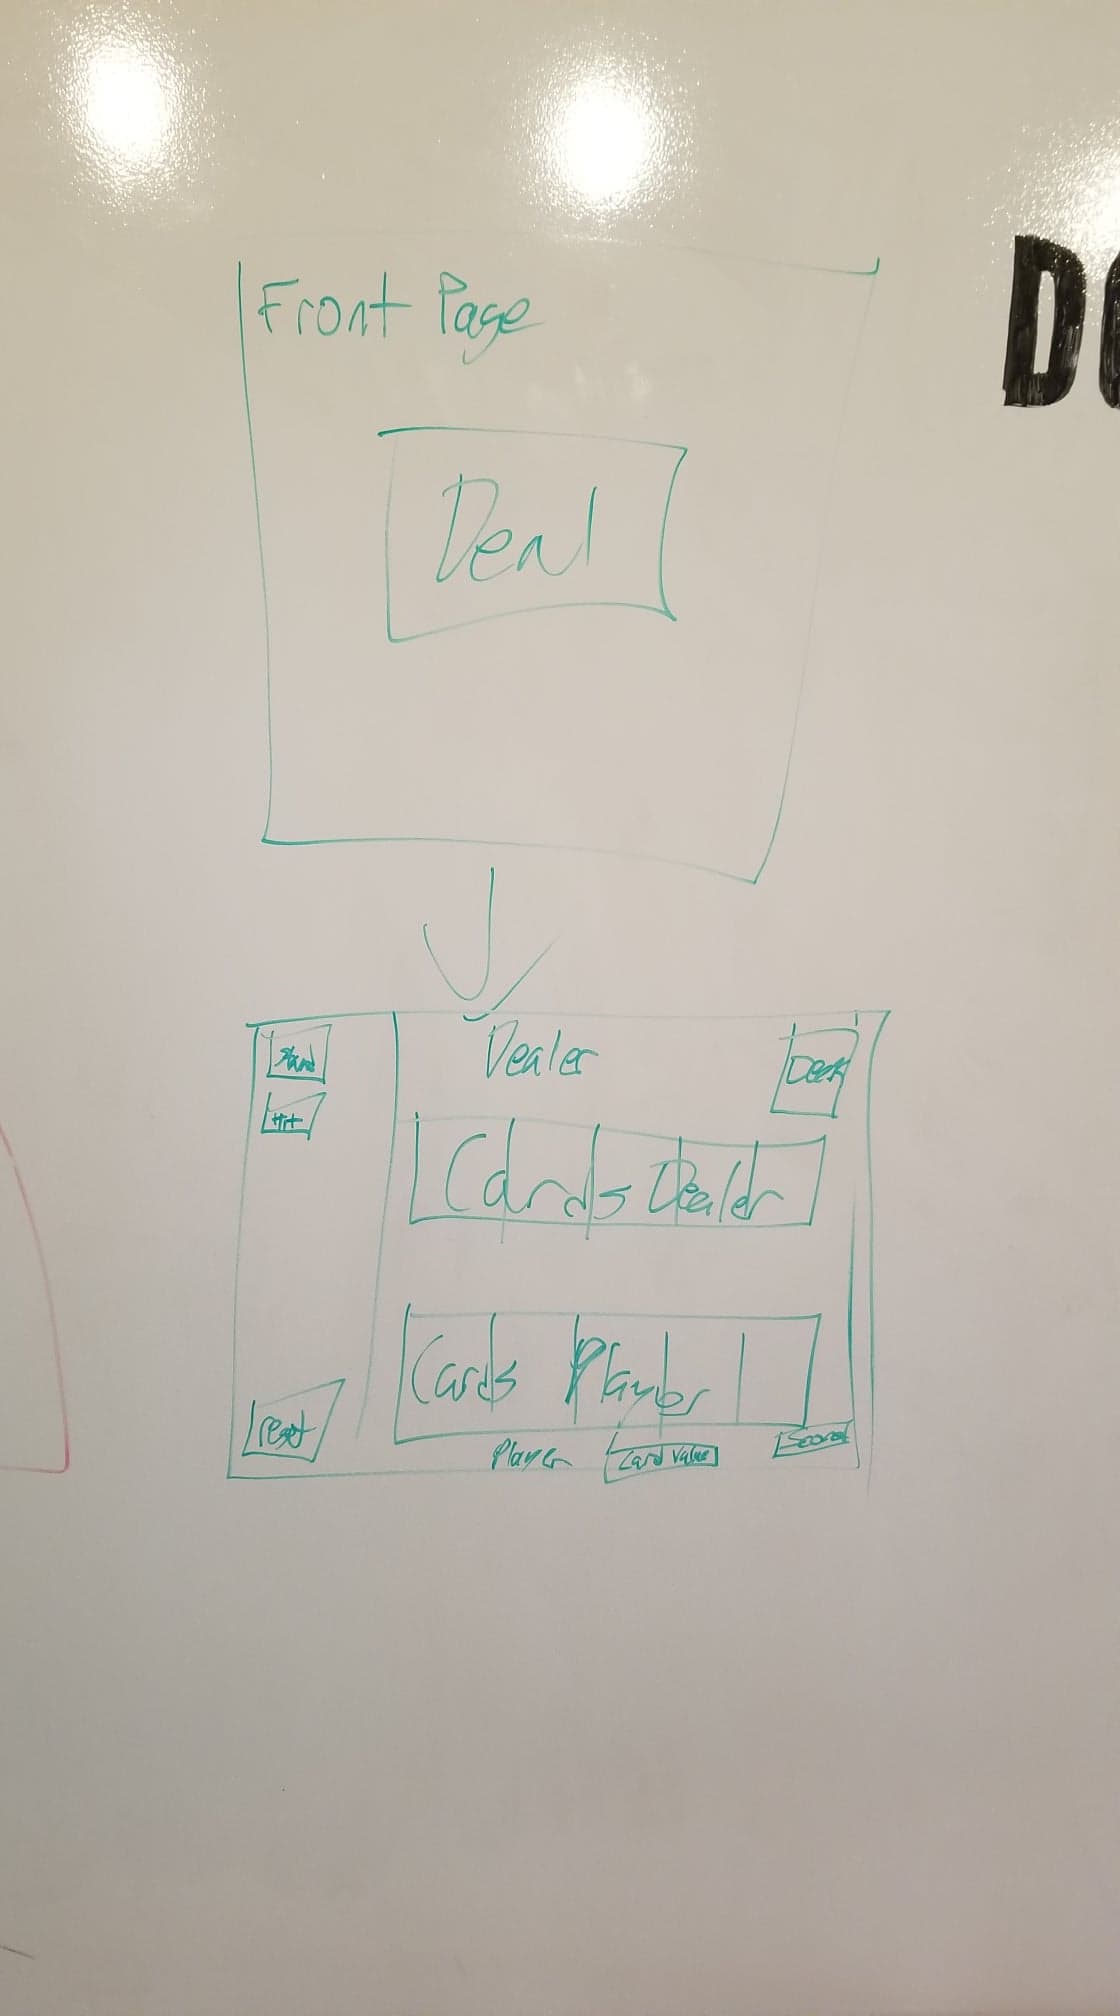 Front Page
Deal
Stand
Dealer
Deck
Hit
Cards Dealer
Cards Player
reset
Player
Card Value